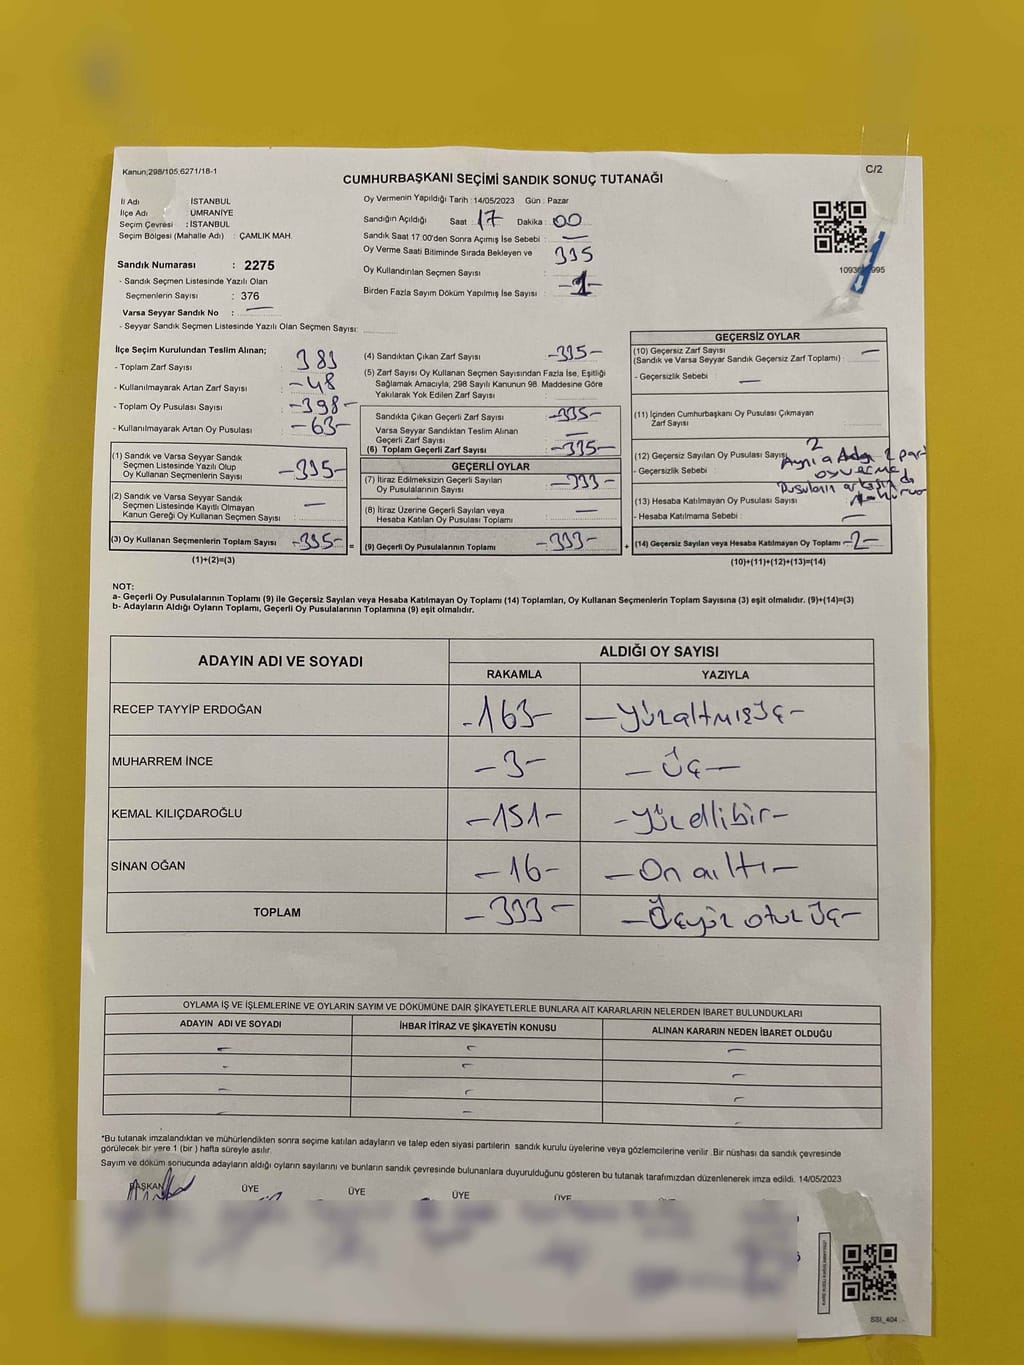 Kanun;298/105;6271/18-1
C/2
CUMHURBAŞKANI SEÇİMİ SANDIK SONUÇ TUTANAĞI
İl Adı : İSTANBUL
İlçe Adı : ÜMRANİYE
Seçim Çevresi : İSTANBUL
Seçim Bölgesi (Mahalle Adı) : ÇAMLIK MAH.
Sandık Numarası : 2275
- Sandık Seçmen Listesinde Yazılı Olan
Seçmenlerin Sayısı : 376
Varsa Seyyar Sandık No : —
- Seyyar Sandık Seçmen Listesinde Yazılı Olan Seçmen Sayısı:
Oy Vermenin Yapıldığı Tarih :14/05/2023 Gün : Pazar
Sandığın Açıldığı Saat : 17 Dakika : 00
Sandık Saat 17:00'den Sonra Açımış İse Sebebi : —
Oy Verme Saati Bitiminde Sırada Bekleyen ve
Oy Kullandırılan Seçmen Sayısı : 335
Birden Fazla Sayım Döküm Yapılmış İse Sayısı : -1-
İlçe Seçim Kurulundan Teslim Alınan;
- Toplam Zarf Sayısı 383
- Kullanılmayarak Artan Zarf Sayısı -48
- Toplam Oy Pusulası Sayısı -398-
- Kullanılmayarak Artan Oy Pusulası -63-
(1) Sandık ve Varsa Seyyar Sandık
Seçmen Listesinde Yazılı Olup
Oy Kullanan Seçmenlerin Sayısı -335-
(2) Sandık ve Varsa Seyyar Sandık
Seçmen Listesinde Kayıtlı Olmayan
Kanun Gereği Oy Kullanan Seçmen Sayısı —
(3) Oy Kullanan Seçmenlerin Toplam Sayısı -335-
(1)+(2)=(3)
(4) Sandıktan Çıkan Zarf Sayısı -335-
(5) Zarf Sayısı Oy Kullanan Seçmen Sayısından Fazla İse, Eşitliği
Sağlamak Amacıyla, 298 Sayılı Kanunun 98. Maddesine Göre
Yakılarak Yok Edilen Zarf Sayısı
Sandıkta Çıkan Geçerli Zarf Sayısı -335-
Varsa Seyyar Sandıktan Teslim Alınan
Geçerli Zarf Sayısı —
(6) Toplam Geçerli Zarf Sayısı -335-
GEÇERLİ OYLAR
(7) İtiraz Edilmeksizin Geçerli Sayılan
Oy Pusulalarının Sayısı -333-
(8) İtiraz Üzerine Geçerli Sayılan veya
Hesaba Katılan Oy Pusulası Toplamı —
= (9) Geçerli Oy Pusulalarının Toplamı -333-
GEÇERSİZ OYLAR
(10) Geçersiz Zarf Sayısı
(Sandık ve Varsa Seyyar Sandık Geçersiz Zarf Toplamı) : —
- Geçersizlik Sebebi : —
(11) İçinden Cumhurbaşkanı Oy Pusulası Çıkmayan
Zarf Sayısı
(12) Geçersiz Sayılan Oy Pusulası Sayısı 2
- Geçersizlik Sebebi : oy verme
Pusulanın
(13) Hesaba Katılmayan Oy Pusulası Sayısı
- Hesaba Katılmama Sebebi : —
+ (14) Geçersiz Sayılan veya Hesaba Katılmayan Oy Toplamı -2-
(10)+(11)+(12)+(13)=(14)
NOT:
a- Geçerli Oy Pusulalarının Toplamı (9) ile Geçersiz Sayılan veya Hesaba Katılmayan Oy Toplamı (14) Toplamları, Oy Kullanan Seçmenlerin Toplam Sayısına (3) eşit olmalıdır. (9)+(14)=(3)
b- Adayların Aldığı Oyların Toplamı, Geçerli Oy Pusulalarının Toplamına (9) eşit olmalıdır.
ADAYIN ADI VE SOYADI
ALDIĞI OY SAYISI
RAKAMLA YAZIYLA
RECEP TAYYİP ERDOĞAN -163- -Yüzaltmışüç-
MUHARREM İNCE -3- -Üç-
KEMAL KILIÇDAROĞLU -151- -Yüz ellibir-
SİNAN OĞAN -16- -On altı-
TOPLAM -333- -Üçyüz otuz üç-
OYLAMA İŞ VE İŞLEMLERİNE VE OYLARIN SAYIM VE DÖKÜMÜNE DAİR ŞİKAYETLERLE BUNLARA AİT KARARLARIN NELERDEN İBARET BULUNDUKLARI
ADAYIN ADI VE SOYADI İHBAR İTİRAZ VE ŞİKAYETİN KONUSU ALINAN KARARIN NEDEN İBARET OLDUĞU
*Bu tutanak imzalandıktan ve mühürlendikten sonra seçime katılan adayların ve talep eden siyasi partilerin sandık kurulu üyelerine veya gözlemcilerine verilir. Bir nüshası da sandık çevresinde
görülecek bir yere 1 (bir ) hafta süreyle asılır.
Sayım ve döküm sonucunda adayların aldığı oyların sayılarını ve bunların sandık çevresinde bulunanlara duyurulduğunu gösteren bu tutanak tarafımızdan düzenlenerek imza edildi. 14/05/2023
BAŞKAN ÜYE ÜYE ÜYE ÜYE
SSI_404